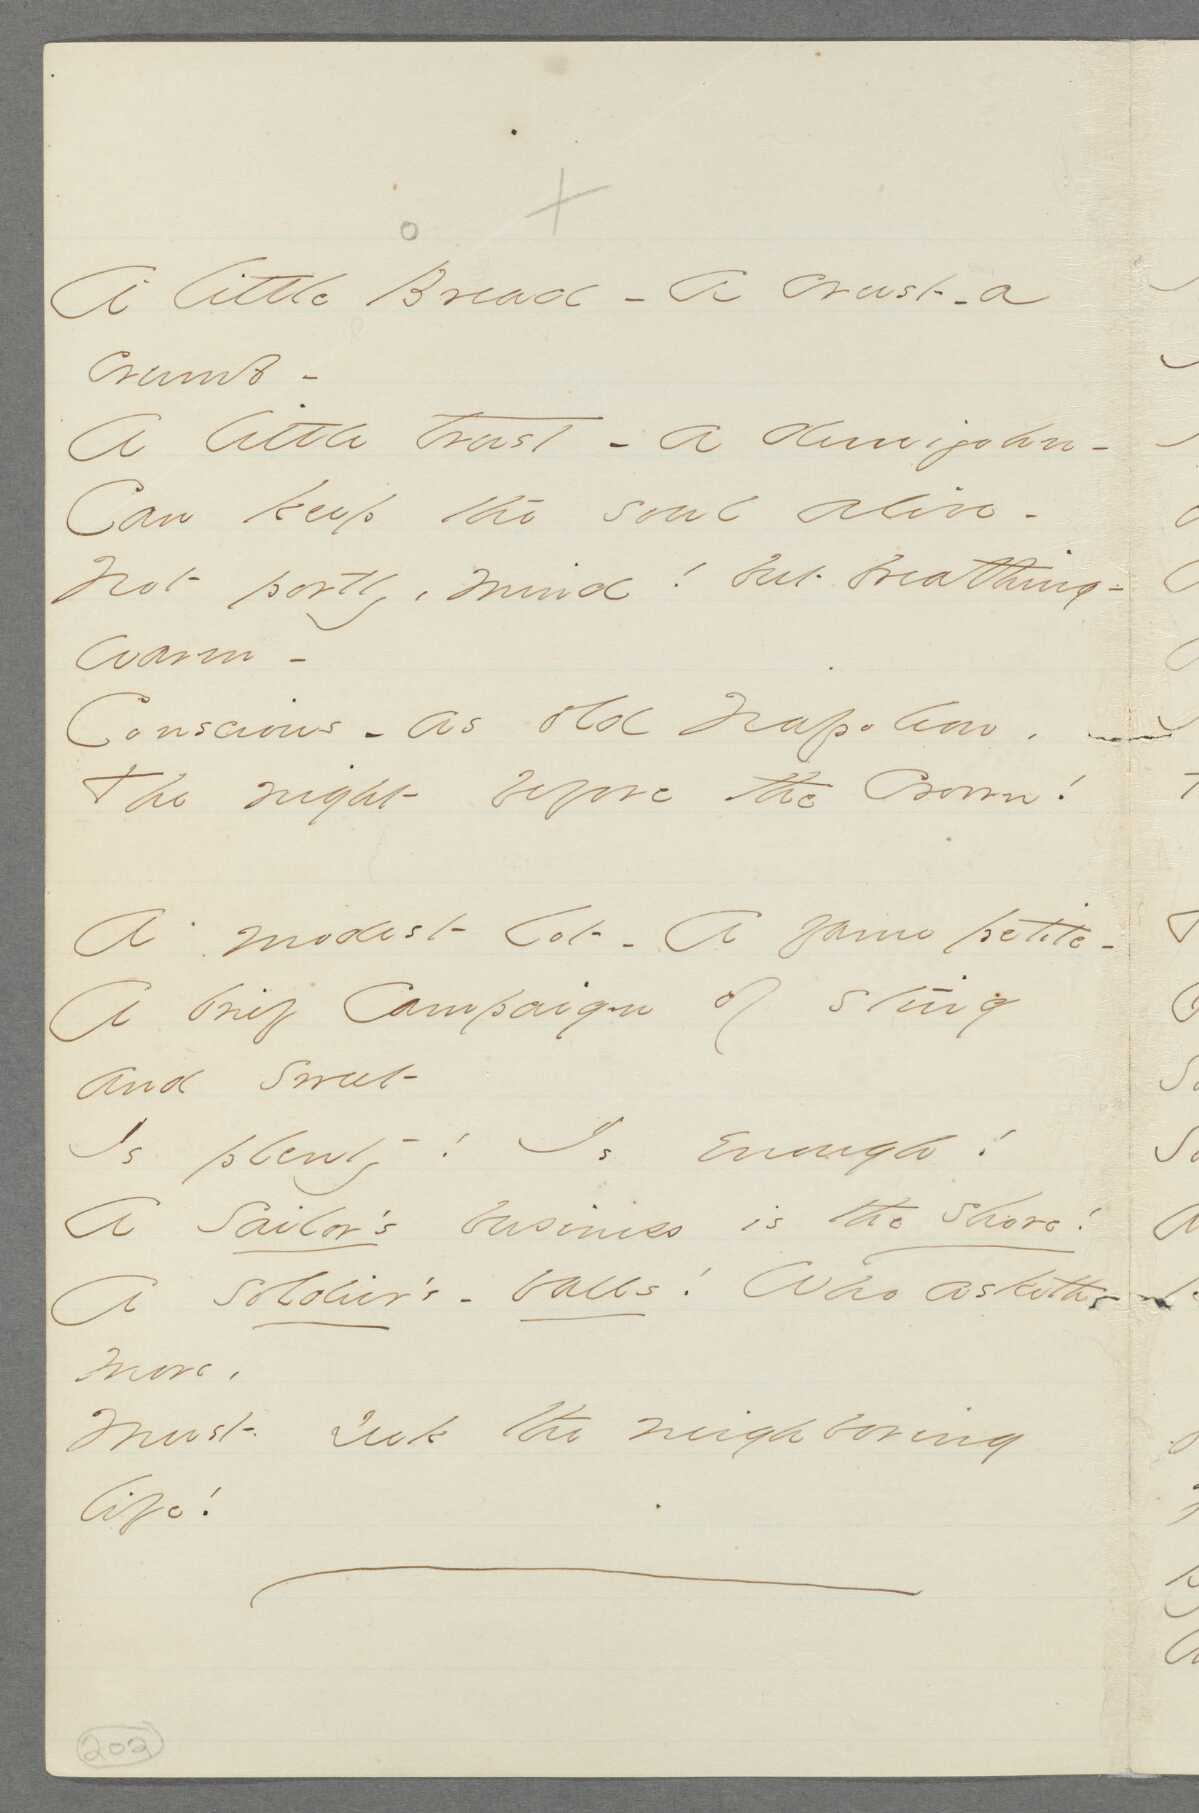 A little Bread - A crust - a
crumb -
A little trust - a demijohn -
Can keep the soul alive -
Not portly, mind! but breathing -
warm -
Conscious - as old Napoleon,
The night before the Crown!
A modest lot - A fame petite -
A brief Campaign of sting
and sweet
Is plenty! Is enough!
A Sailor's business is the shore!
A soldier's - balls! Who asketh
more,
Must seek the neighboring
life!
202